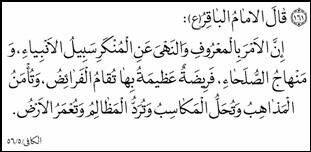 ١٦١ قٰالَ الاِمٰامُ البٰاقِرُ(ع):
إِنَّ الاَمرَ بِالْمَعْرُوفِ وَالنَّهْىَ عَنِ الْمُنْكَرِ سَبِيلُ الاَنْبِياءِ، وَ
مِنْهاجُ الصُّلَحاءِ، فَرِيضَةٌ عَظِيمَةٌ بِهَا تُقامُ الْفَرائِضُ، وَتَأْمَنُ
الْمَذاهِبُ وَتُحَلُّ الْمَكاسِبُ وَتُرَدُّ الْمَظالِمُ وَتُعْمَرُ الاَرْضُ.
الكافى ٥٦/٥